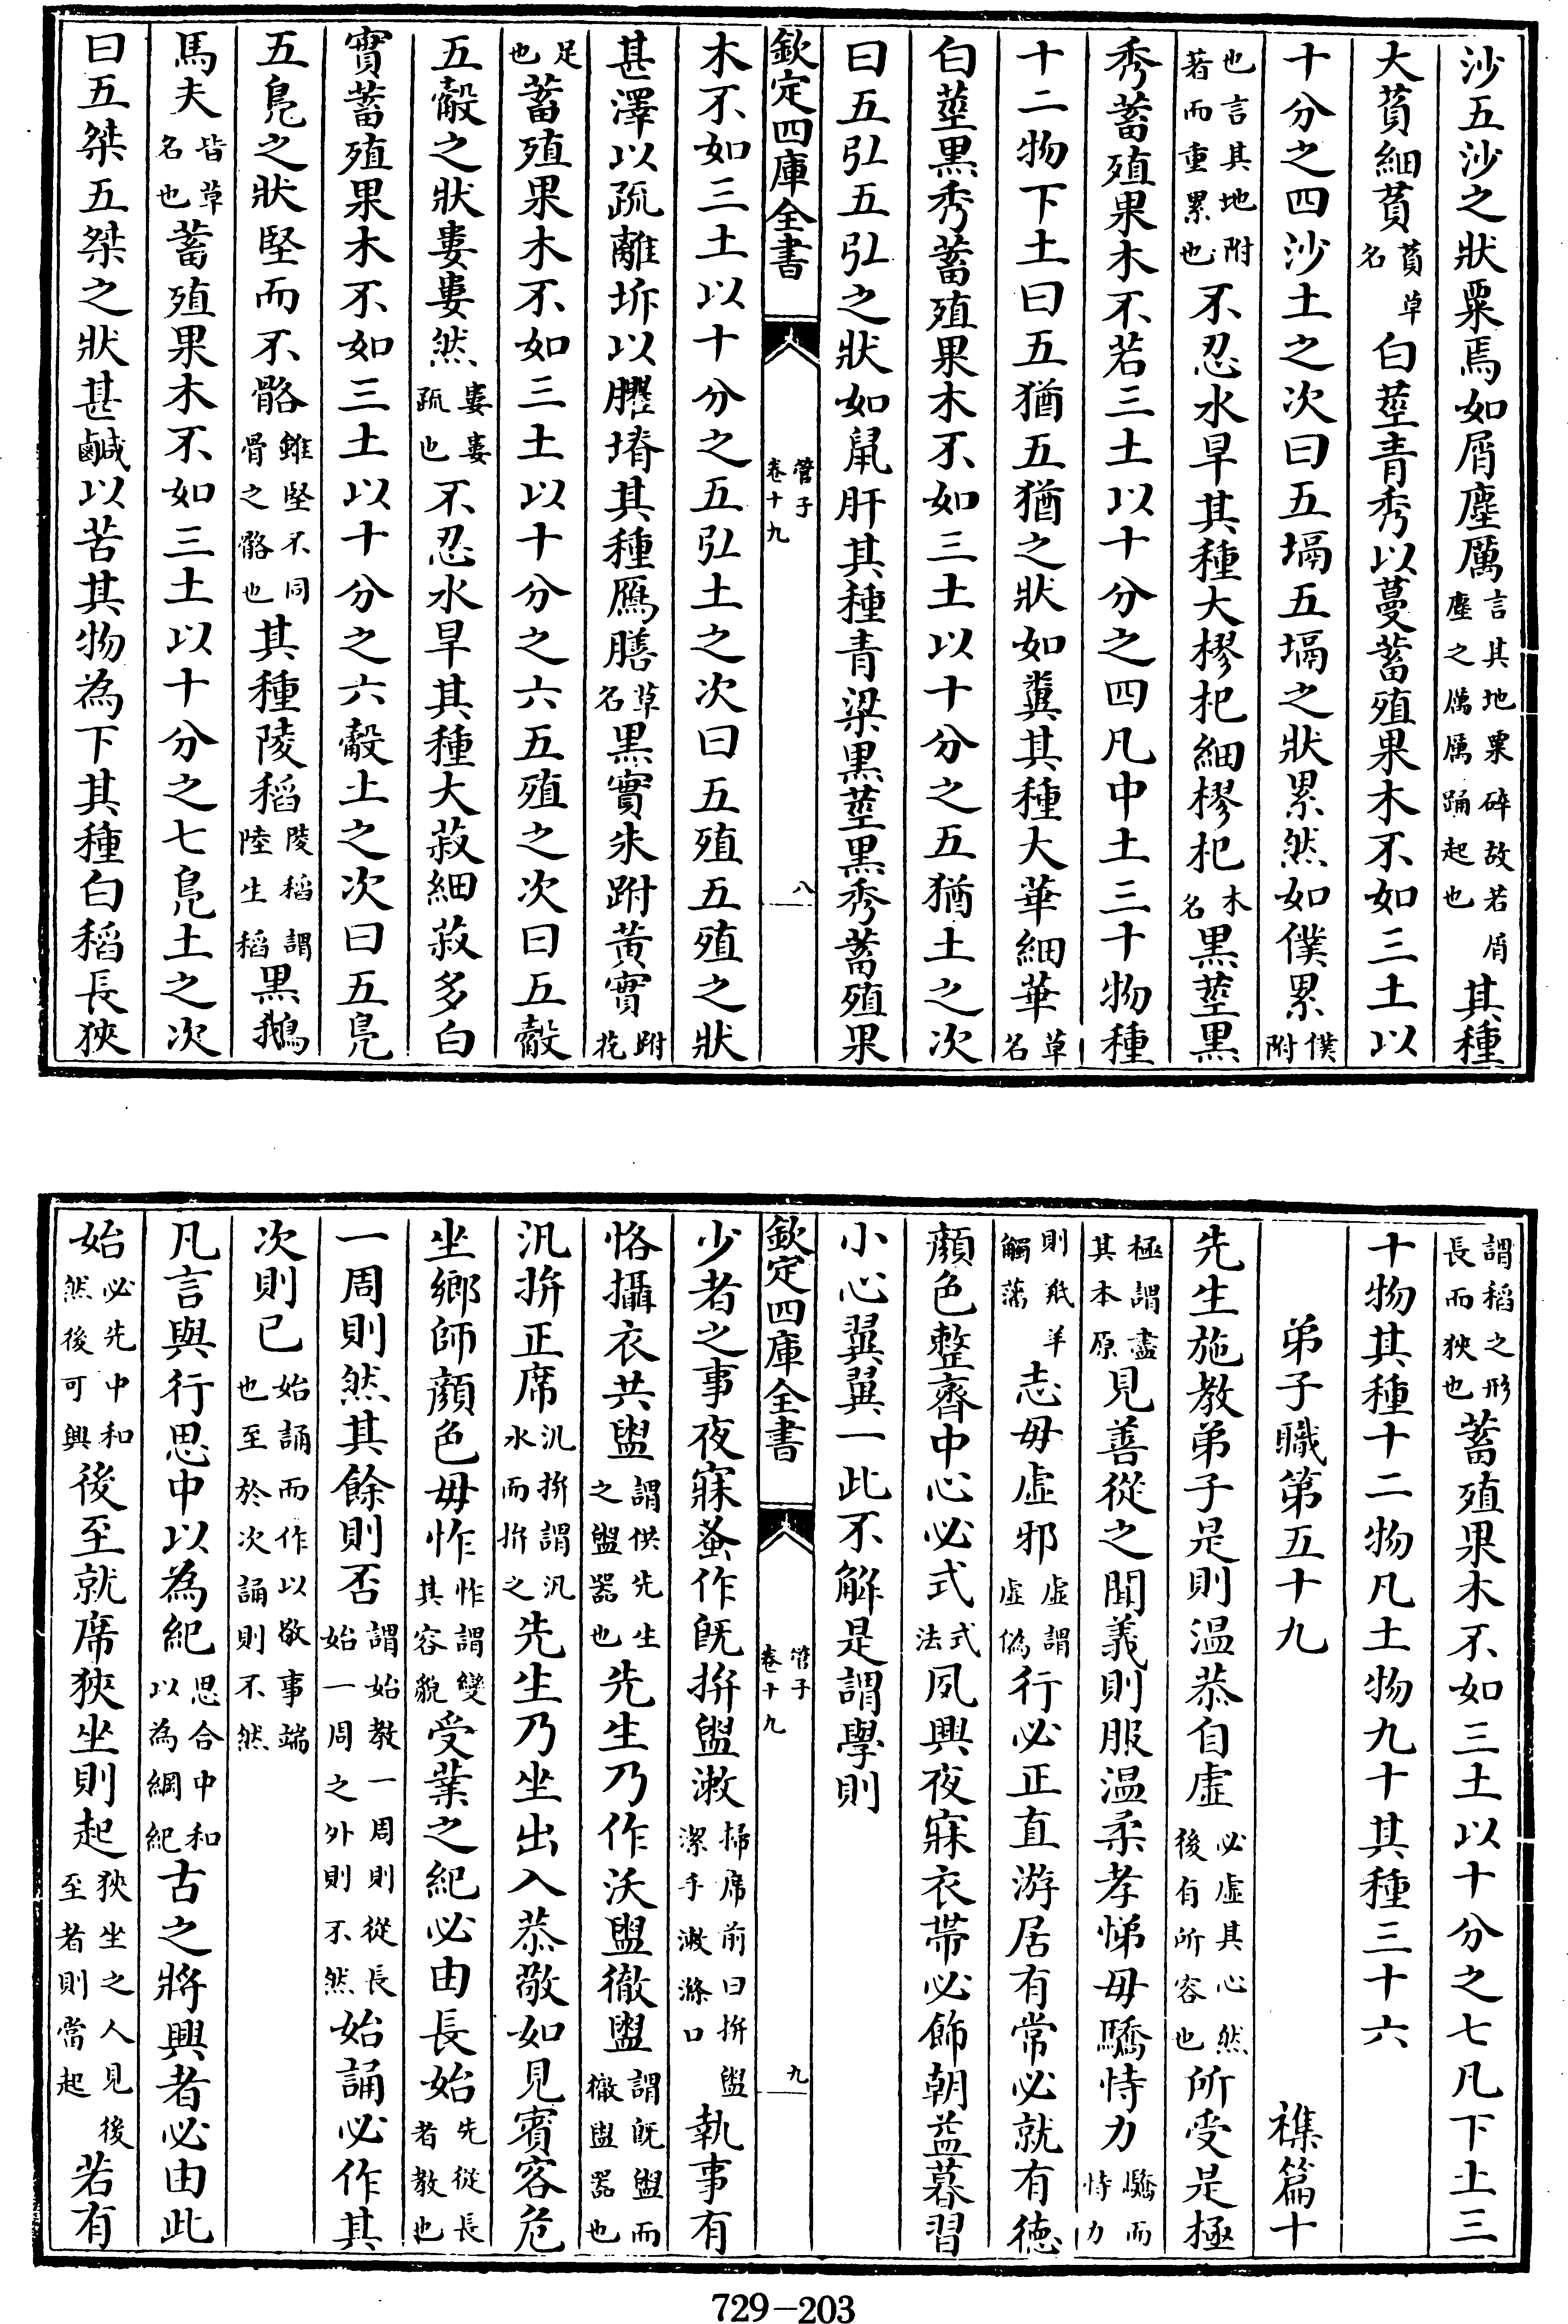 沙五沙之狀粟焉如屑塵厲言其地粟碎故若屑塵之厲厲踊起也其種
大萯細萯萯草名白莖青秀以蔓蓄殖果木不如三土以
十分之四沙土之次曰五塥五塥之狀累然如僕累僕附
也言其地附著而重累也不忍水旱其種大樛杞細樛杞木名黑莖黑
秀蓄殖果木不若三土以十分之四凡中土三十物種
十二物下土曰五猶五猶之狀如糞其種大華細華草名
白莖黑秀蓄殖果木不如三土以十分之五猶土之次
曰五弘五弘之狀如鼠肝其種青粱黑莖黑秀蓄殖果
欽定四庫全書
管子
卷十九
八
木不如三土以十分之五弘土之次曰五殖五殖之狀
甚澤以疏離坼以臞塉其種鴈膳草名黑實朱跗黃實跗花
足也蓄殖果木不如三土以十分之六五殖之次曰五觳
五觳之狀婁婁然婁婁疏也不忍水旱其種大菽細菽多白
實蓄殖果木不如三土以十分之六觳土之次曰五鳧
五鳧之狀堅而不骼雖堅不同骨之骼也其種陵稻陵稻謂陸生稻黑鵝
馬夫皆草名也蓄殖果木不如三土以十分之七鳧土之次
曰五桀五桀之狀甚鹹以苦其物為下其種白稻長狹
謂稻之形長而狹也蓄殖果木不如三土以十分之七凡下土三
十物其種十二物凡土物九十其種三十六
弟子職第五十九 襍篇十
先生施教弟子是則溫恭自虛必虛其心然後有所容也所受是極
極謂盡其本原見善從之聞義則服溫柔孝悌毋驕恃力驕而恃力
則羝羊觸藩志毋虛邪虛謂虛偽行必正直游居有常必就有德
顏色整齊中心必式式法夙興夜寐衣帶必飾朝益暮習
小心翼翼一此不解是謂學則
欽定四庫全書
管子
卷十九
九
少者之事夜寐蚤作既拚盥漱掃席前曰拚盥潔手漱滌口執事有
恪攝衣共盥謂供先生之盥器也先生乃作沃盥徹盥謂既盥而徹盥器也
汎拚正席汎拚謂汎水而拚之先生乃坐出入恭敬如見賓客危
坐鄉師顏色毋怍怍謂變其容貌受業之紀必由長始先從長者教也
一周則然其餘則否謂始教一周則從長始一周之外則不然始誦必作其
次則已始誦而作以敬事端也至於次誦則不然
凡言與行思中以為紀思合中和以為綱紀古之將興者必由此
始必先中和然後可興後至就席狹坐則起狹坐之人見後至者則當起若有
729—203